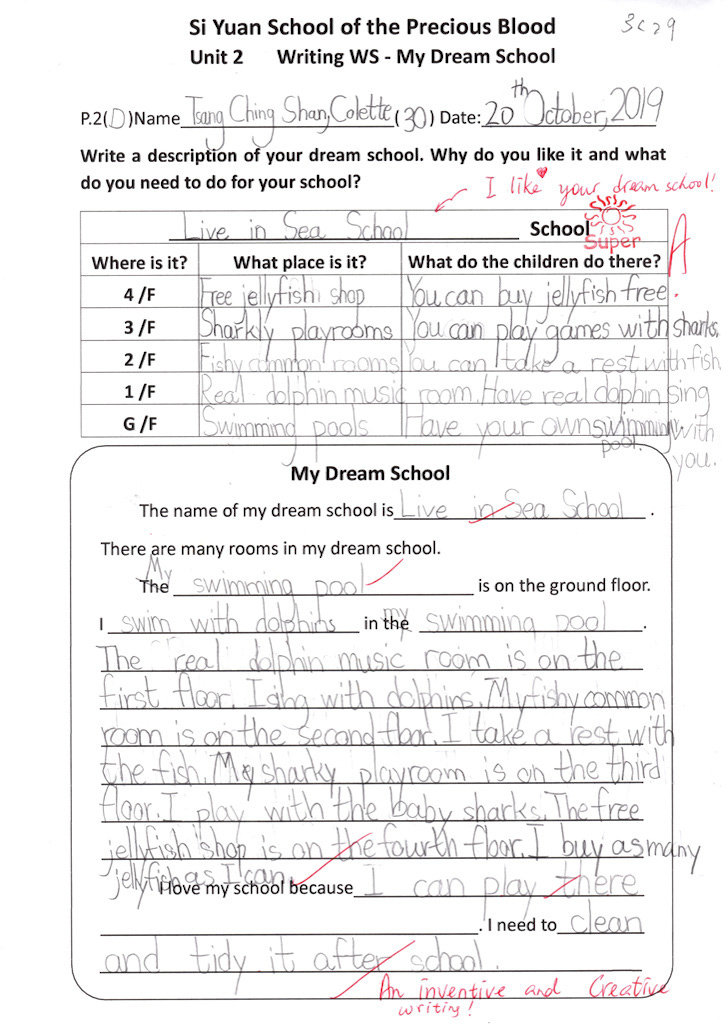 Si Yuan School of the Precious Blood
Unit 2 Writing WS - My Dream School
P.2(D)Name Tsang Ching Shan, Colette (30) Date: 20th October, 2019
Write a description of your dream school. Why do you like it and what
do you need to do for your school?
I like your dream school!
Live in Sea School School
Super A
Where is it? What place is it? What do the children do there?
4 /F Free jellyfish shop You can buy jellyfish free.
3 /F Sharkly playrooms You can play games with sharks.
2 /F Fishy common rooms You can take a rest with fish
1 /F Real dolphin music room. Have real dolphin sing with you.
G /F Swimming pools Have your own swimming pool.
My Dream School
The name of my dream school is Live in Sea School .
There are many rooms in my dream school.
My
The swimming pool is on the ground floor.
I swim with dolphins in the my swimming pool .
The real dolphin music room is on the
first floor. I sing with dolphins. My fishy common
room is on the second floor. I take a rest with
the fish. My sharky playroom is on the third
floor. I play with the baby sharks. The free
jellyfish shop is on the fourth floor. I buy as many
jellyfish as I can.
I love my school because I can play there
. I need to clean
and tidy it after school.
An inventive and Creative
writing!